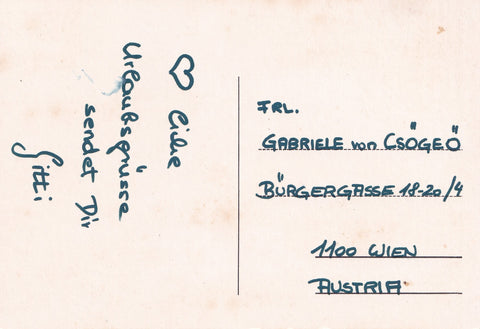 ♡ liche
Urlaubsgrüsse
sendet Dir
Gitti
FRL.
GABRIELE von CSÖGEÖ
BÜRGERGASSE 18-20/4
1100 WIEN
AUSTRIA